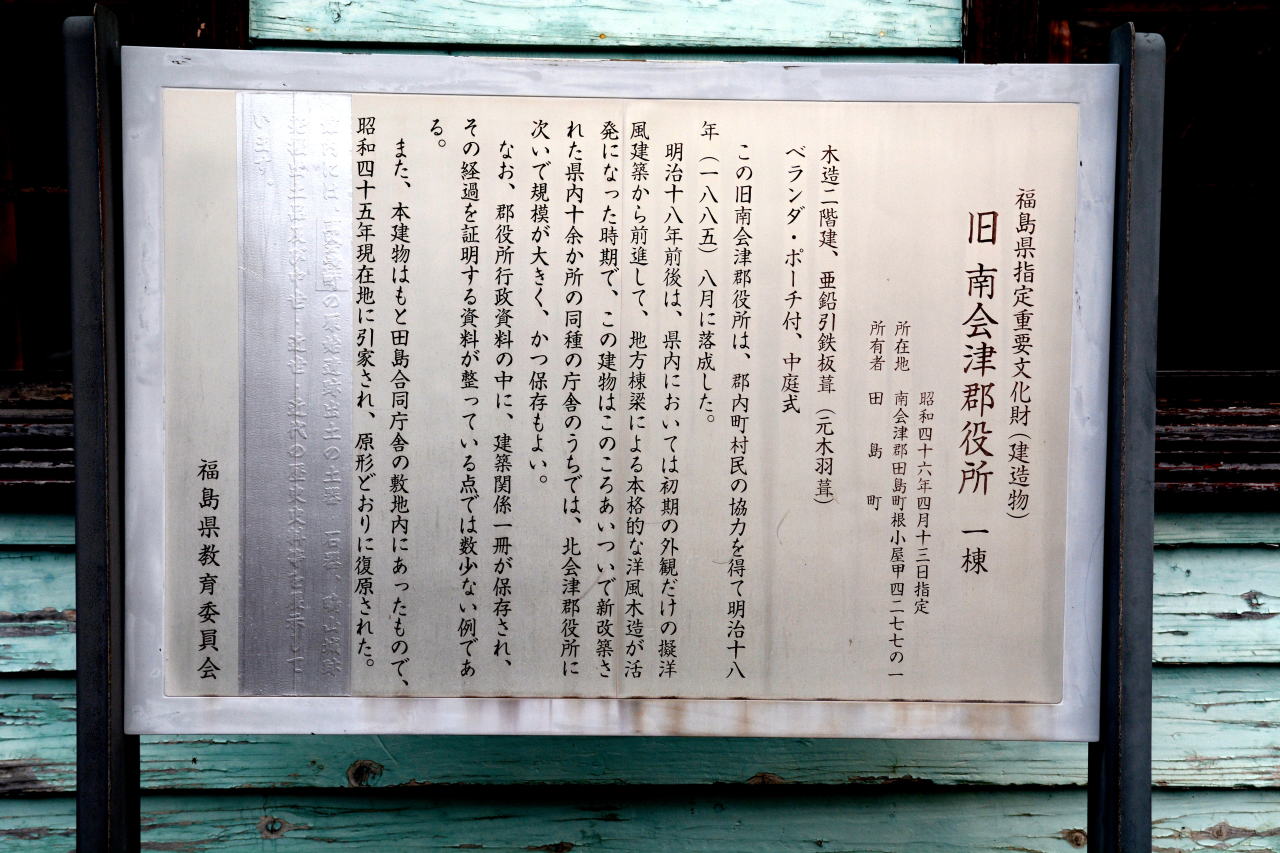 福島県指定重要文化財（建造物）
旧 南会津郡役所 一棟
昭和四十六年四月十三日指定
所在地 南会津郡田島町根小屋甲四二七七の一
所有者 田島町
木造二階建、亜鉛引鉄板葺（元木羽葺）
ベランダ・ポーチ付、中庭式
この旧南会津郡役所は、郡内町村民の協力を得て明治十八
年（一八八五）八月に落成した。
明治十八年前後は、県内においては初期の外観だけの擬洋
風建築から前進して、地方棟梁による本格的な洋風木造が活
発になった時期で、この建物はこのころあいついで新改築さ
れた県内十余か所の同種の庁舎のうちでは、北会津郡役所に
次いで規模が大きく、かつ保存もよい。
なお、郡役所行政資料の中に、建築関係一冊が保存され、
その経過を証明する資料が整っている点では数少ない例であ
る。
また、本建物はもと田島合同庁舎の敷地内にあったもので、
昭和四十五年現在地に引家され、原形どおりに復原された。
には
の
遺跡出土の土器、石器、
います。
福島県教育委員会